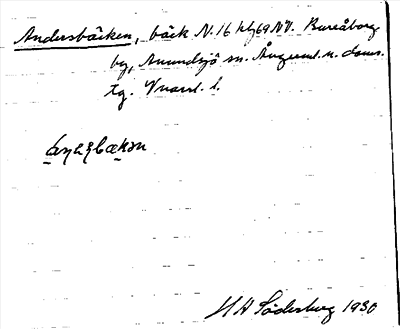 Andersbäcken, bäck N. 16 kl 69 NV. Bureåborg
by, Anundsjö sn. Ångerml. n. doms.
tg. Vnorrl. l.
H A Söderberg 1930